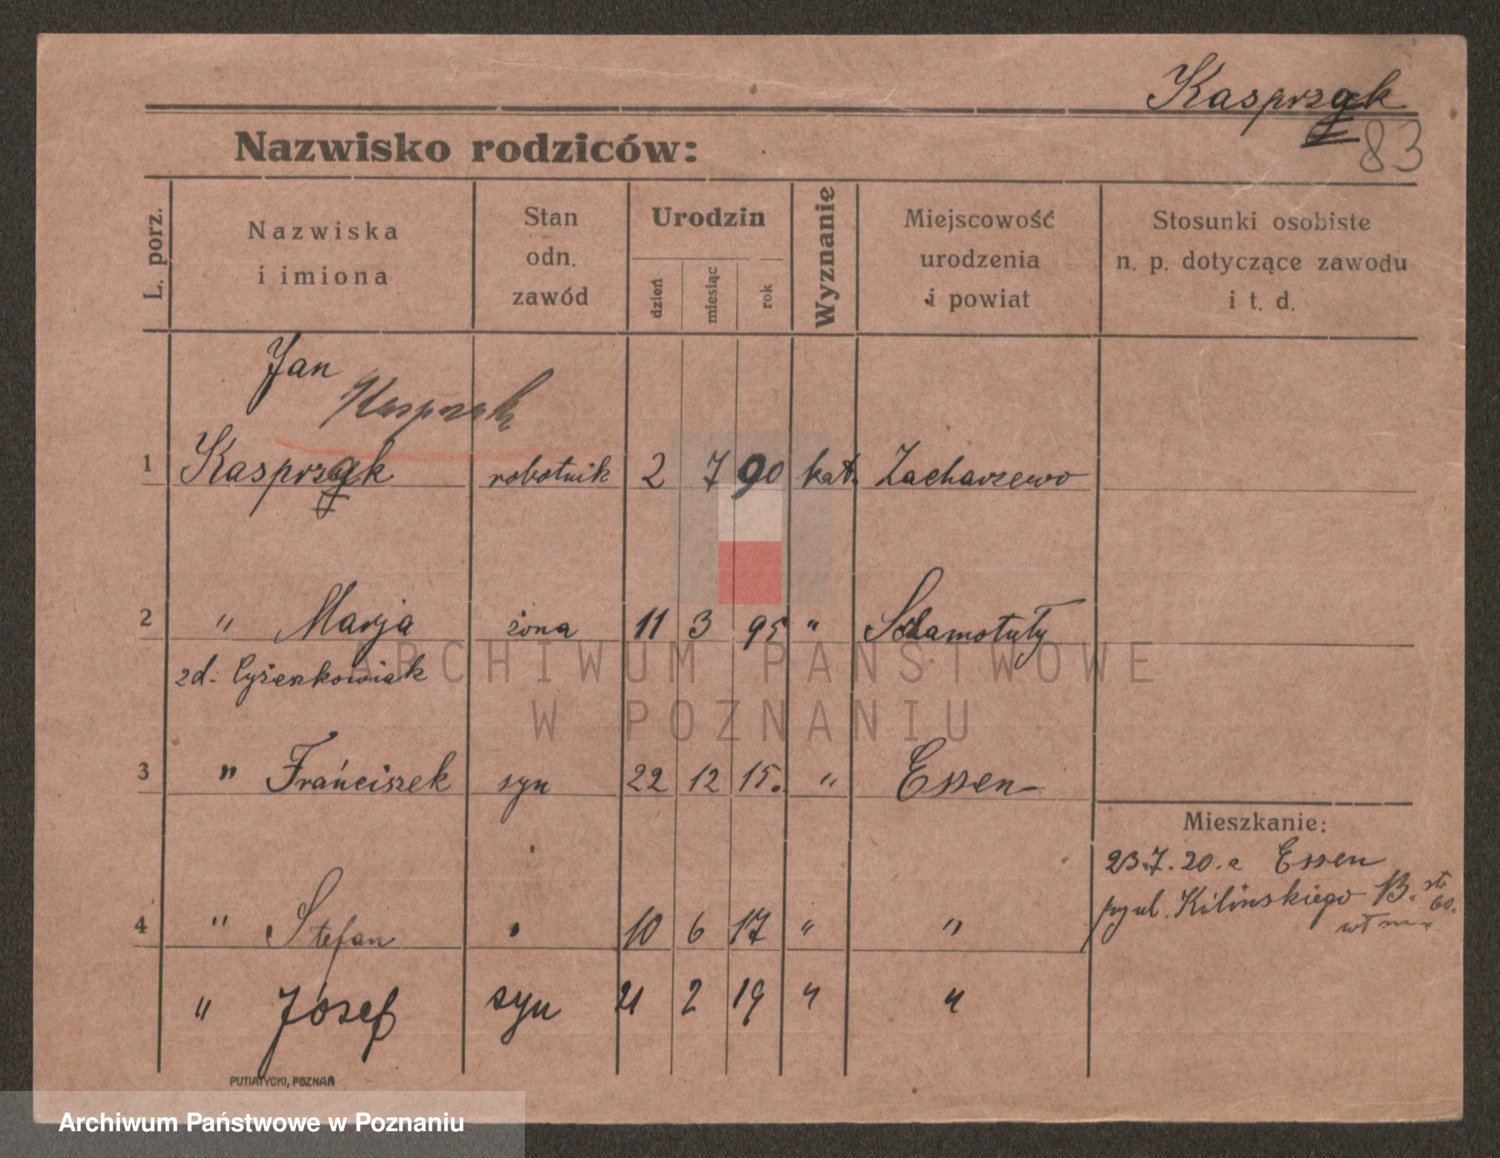 Kasprzak
83
Nazwisko rodziców:
L. porz.
Nazwiska
i imiona
Stan
odn.
zawód
Urodzin
dzień
miesiąc
rok
Wyznanie
Miejscowość
urodzenia
i powiat
Stosunki osobiste
n. p. dotyczące zawodu
i t. d.
Jan
Kasprzak
1 Kasprzak robotnik 2 7 90 kat. Zacharzewo
2 " Marja żona 11 3 95 " Szamotuły
zd.
3 " Franciszek syn 22 12 15. " Essen
Mieszkanie:
23.7.20. z Essen
ul. Kilińskiego 13.
4 " Stefan " 10 6 17 " "
" Józef syn 21 2 19 " "
PUTIATYCKI, POZNAŃ
ARCHIWUM PAŃSTWOWE
W POZNANIU
Archiwum Państwowe w Poznaniu